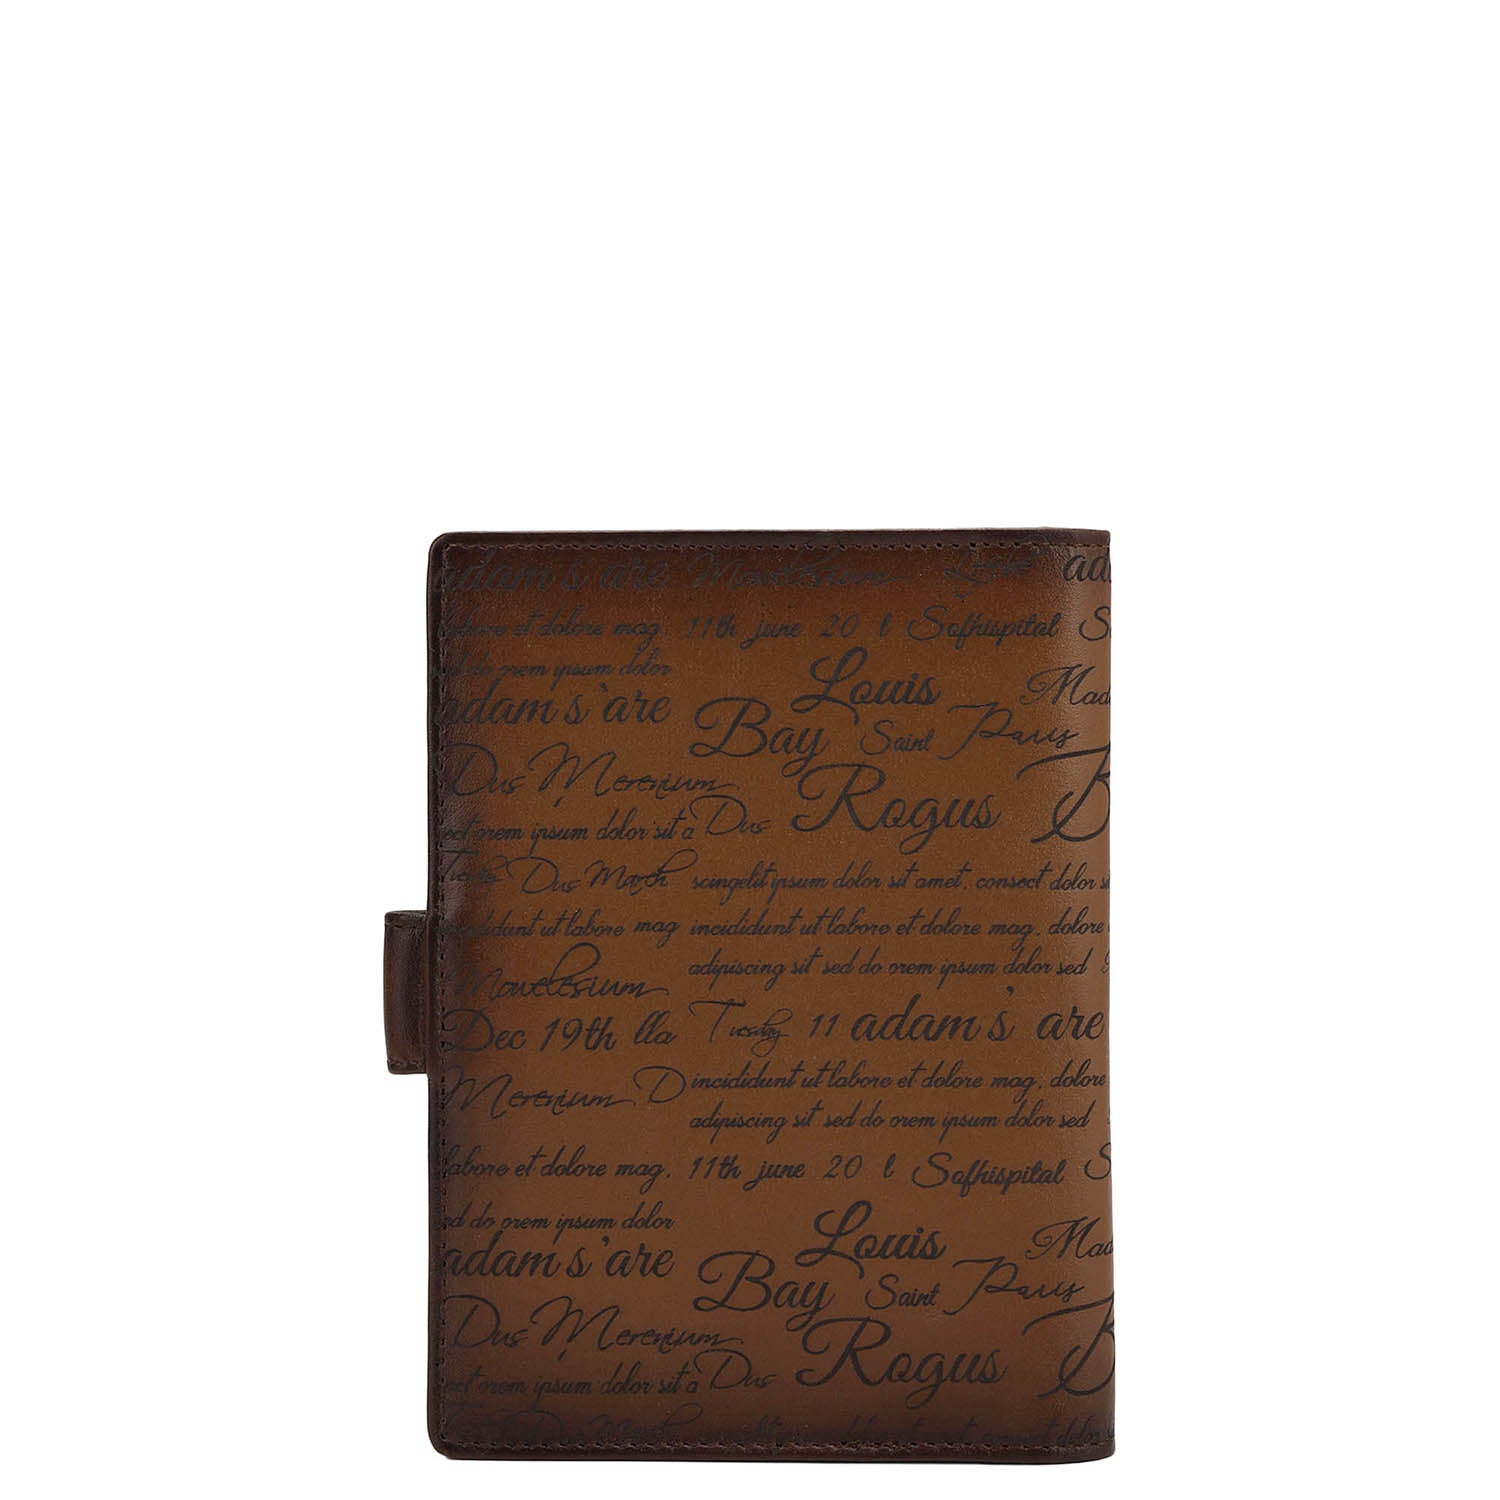 adam's are Mowelesium Louis ad
labore et dolore mag. 11th june 20 l Sofhispital S
do orem ipsum dolor Louis Mad
adam's 'are Bay Saint Paris
Dus Merenium Rogus B
orem ipsum dolor sit a Dus
Dus March scingelit ipsum dolor sit amet, consect dolor s
incididunt ut labore mag incididunt ut labore et dolore mag. dolore
adipiscing sit sed do orem ipsum dolor sed
Mowelesium
Dec 19th lla Tuesday 11 adam's are
Merenium D incididunt ut labore et dolore mag. dolore
adipiscing sit sed do orem ipsum dolor sed
labore et dolore mag. 11th june 20 l Sofhispital S
ed do orem ipsum dolor Louis Mad
adam's 'are Bay Saint Paris
Dus Merenium Rogus B
ect orem ipsum dolor sit a Dus
Dus March scingelit ipsum dolor sit amet, consect dolor s